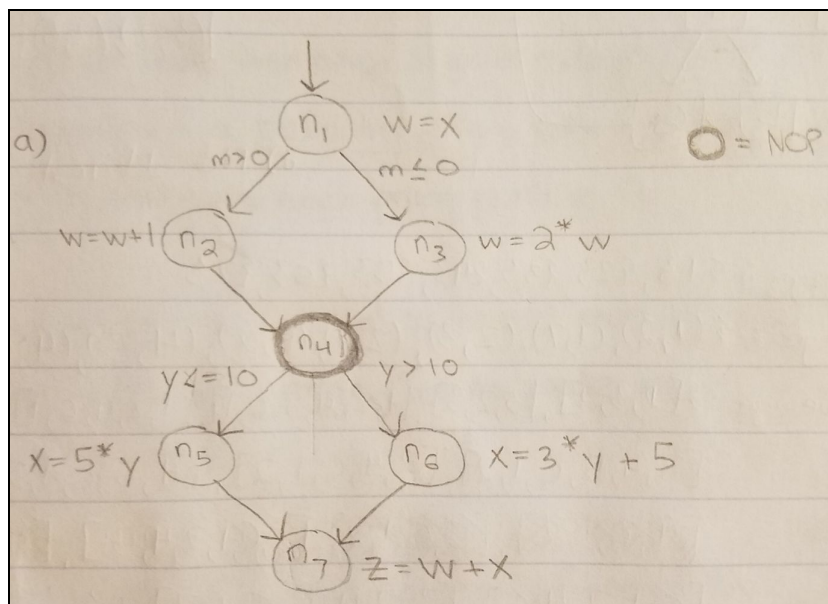 n1 w=x
a) O = NOP
m>0 m≤0
w=w+1 n2 n3 w=2*w
n4
y<=10 y>10
x=5*y n5 n6 x=3*y+5
n7 z=w+x